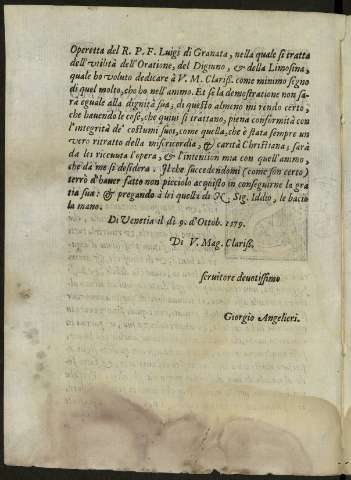 Operetta del R. P. F. Luigi di Granata, nella quale si tratta
dell'vtilità dell'Oratione, del Digiuno, & della Limosina,
quale ho voluto dedicare à V. M. Clariss. come minimo segno
di quel molto, cho ho nell'animo. Et se la demostratione non sa-
rà eguale alla dignità sua; di questo almeno mi rendo certo,
che hauendo le cose, che quiui si trattano, piena conformità con
l'integrità de' costumi suoi, come quella, che è stata sempre un
vero ritratto della misericordia, & carità Christiana; sarà
da lei riceuuta l'opera, & l'intention mia con quell'animo,
che da me si desidera. Ilche succedendomi (come son certo)
terrò d'hauer fatto non picciolo acquisto in conseguirne la gra
tia sua: & pregando à lei quella di N. Sig. Iddio, le bacio
la mano.
Di Venetia il di 9. d'Ottob. 1579.
Di V. Mag. Clariss.
seruitore deuotissimo
Giorgio Angelieri.